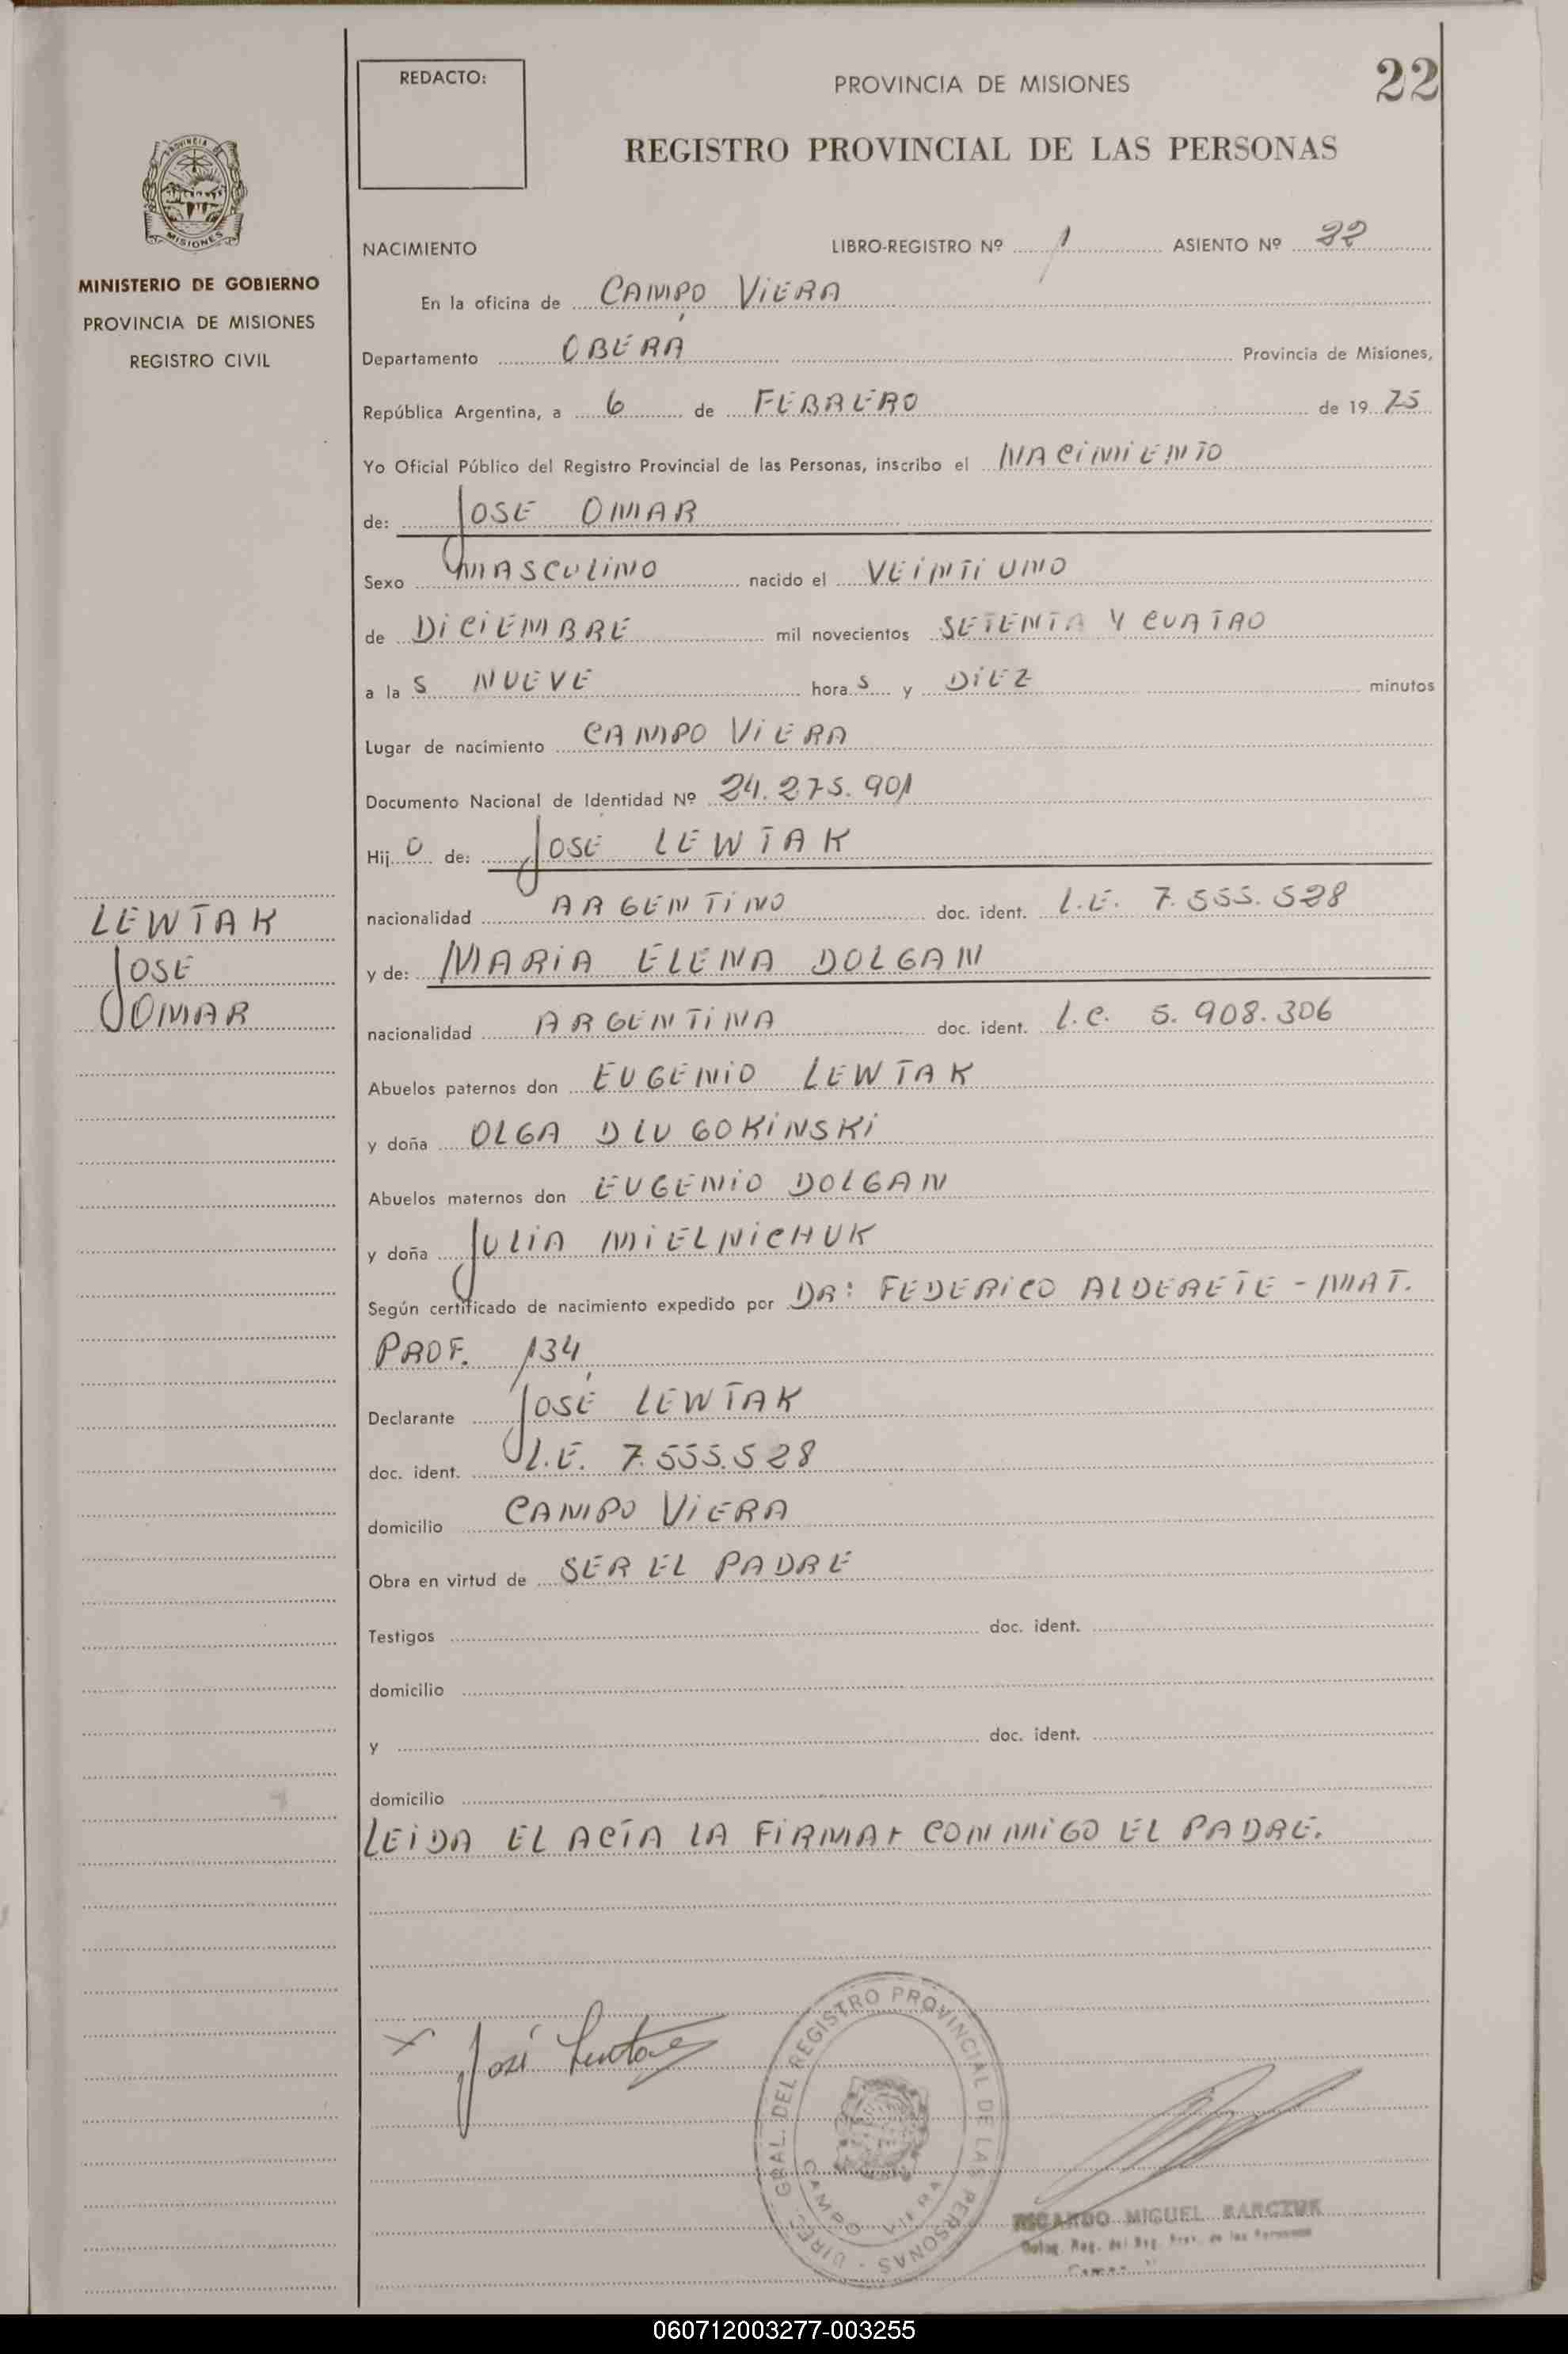 REDACTO:
PROVINCIA DE MISIONES
22
REGISTRO PROVINCIAL DE LAS PERSONAS
PROVINCIA DE
MISIONES
MINISTERIO DE GOBIERNO
PROVINCIA DE MISIONES
REGISTRO CIVIL
NACIMIENTO LIBRO-REGISTRO Nº 1 ASIENTO Nº 22
En la oficina de CAMPO VIERA
Departamento OBERÁ Provincia de Misiones,
República Argentina, a 6 de FEBRERO de 19 75
Yo Oficial Público del Registro Provincial de las Personas, inscribo el NACIMIENTO
de: JOSE OMAR
Sexo MASCULINO nacido el VEINTIUNO
de DICIEMBRE mil novecientos SETENTA Y CUATRO
a la S NUEVE hora S y DIEZ minutos
Lugar de nacimiento CAMPO VIERA
Documento Nacional de Identidad Nº 24.275.901
Hij O de: JOSE LEWTAK
nacionalidad ARGENTINO doc. ident. L.E. 7.555.528
y de: MARIA ELENA DOLGAN
nacionalidad ARGENTINA doc. ident. L.C. 5.908.306
Abuelos paternos don EUGENIO LEWTAK
y doña OLGA DLUGOKINSKI
Abuelos maternos don EUGENIO DOLGAN
y doña JULIA MIELNICHUK
Según certificado de nacimiento expedido por DR: FEDERICO ALDERETE - MAT.
PROF. 134
Declarante JOSÉ LEWTAK
doc. ident. L.E. 7.555.528
domicilio CAMPO VIERA
Obra en virtud de SER EL PADRE
Testigos doc. ident.
domicilio
y doc. ident.
domicilio
LEIDA EL ACTA LA FIRMA+ CONMIGO EL PADRE.
LEWTAK
JOSE
OMAR
X José Lewtak
DIREC. GRAL. DEL REGISTRO PROVINCIAL DE LAS PERSONAS
CAMPO VIERA
RICARDO MIGUEL BARCZUK
Deleg. Reg. del Reg. Prov. de las Personas
060712003277-003255